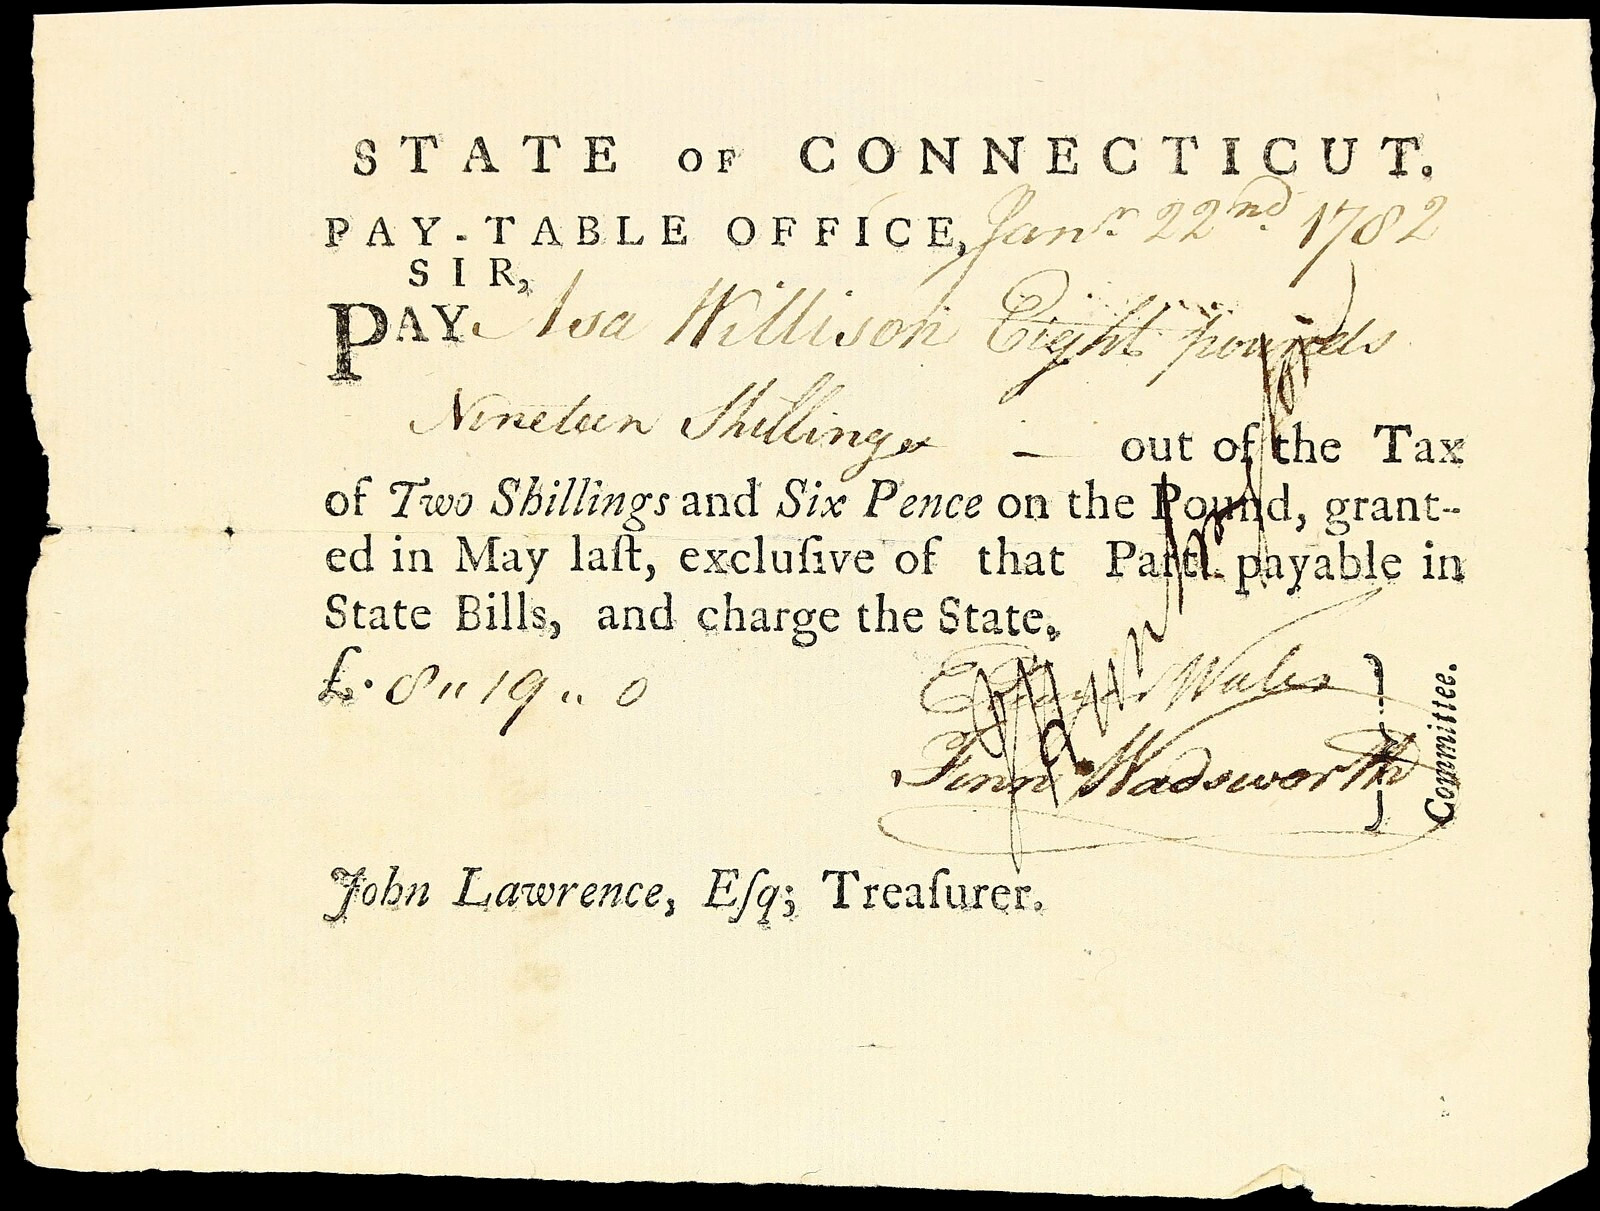 STATE OF CONNECTICUT.
PAY-TABLE OFFICE, Janr. 22nd. 1782
SIR,
PAY Asa Willison Eight pounds
Nineteen Shillings — out of the Tax
of Two Shillings and Six Pence on the Pound, grant-
ed in May laſt, excluſive of that Part payable in
State Bills, and charge the State.
£. 8 " 19 " 0
Wales
Fenn Wadsworth
Committee.
John Lawrence, Eſq; Treaſurer.